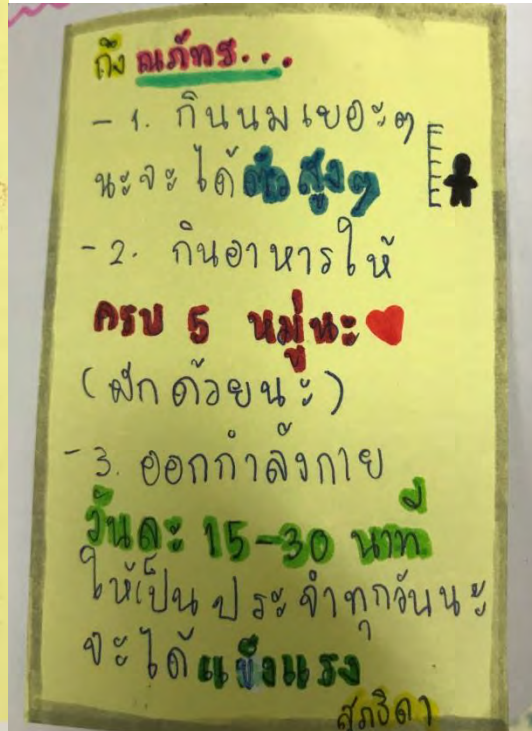 ถึง ณภัทร...
- 1. กินนมเยอะๆ
นะจะได้ตัวสูงๆ
- 2. กินอาหารให้
ครบ 5 หมู่นะ
(ผักด้วยนะ)
- 3. ออกกำลังกาย
วันละ 15-30 นาที
ให้เป็นประจำทุกวันนะ
จะได้แข็งแรง
สุภธิดา